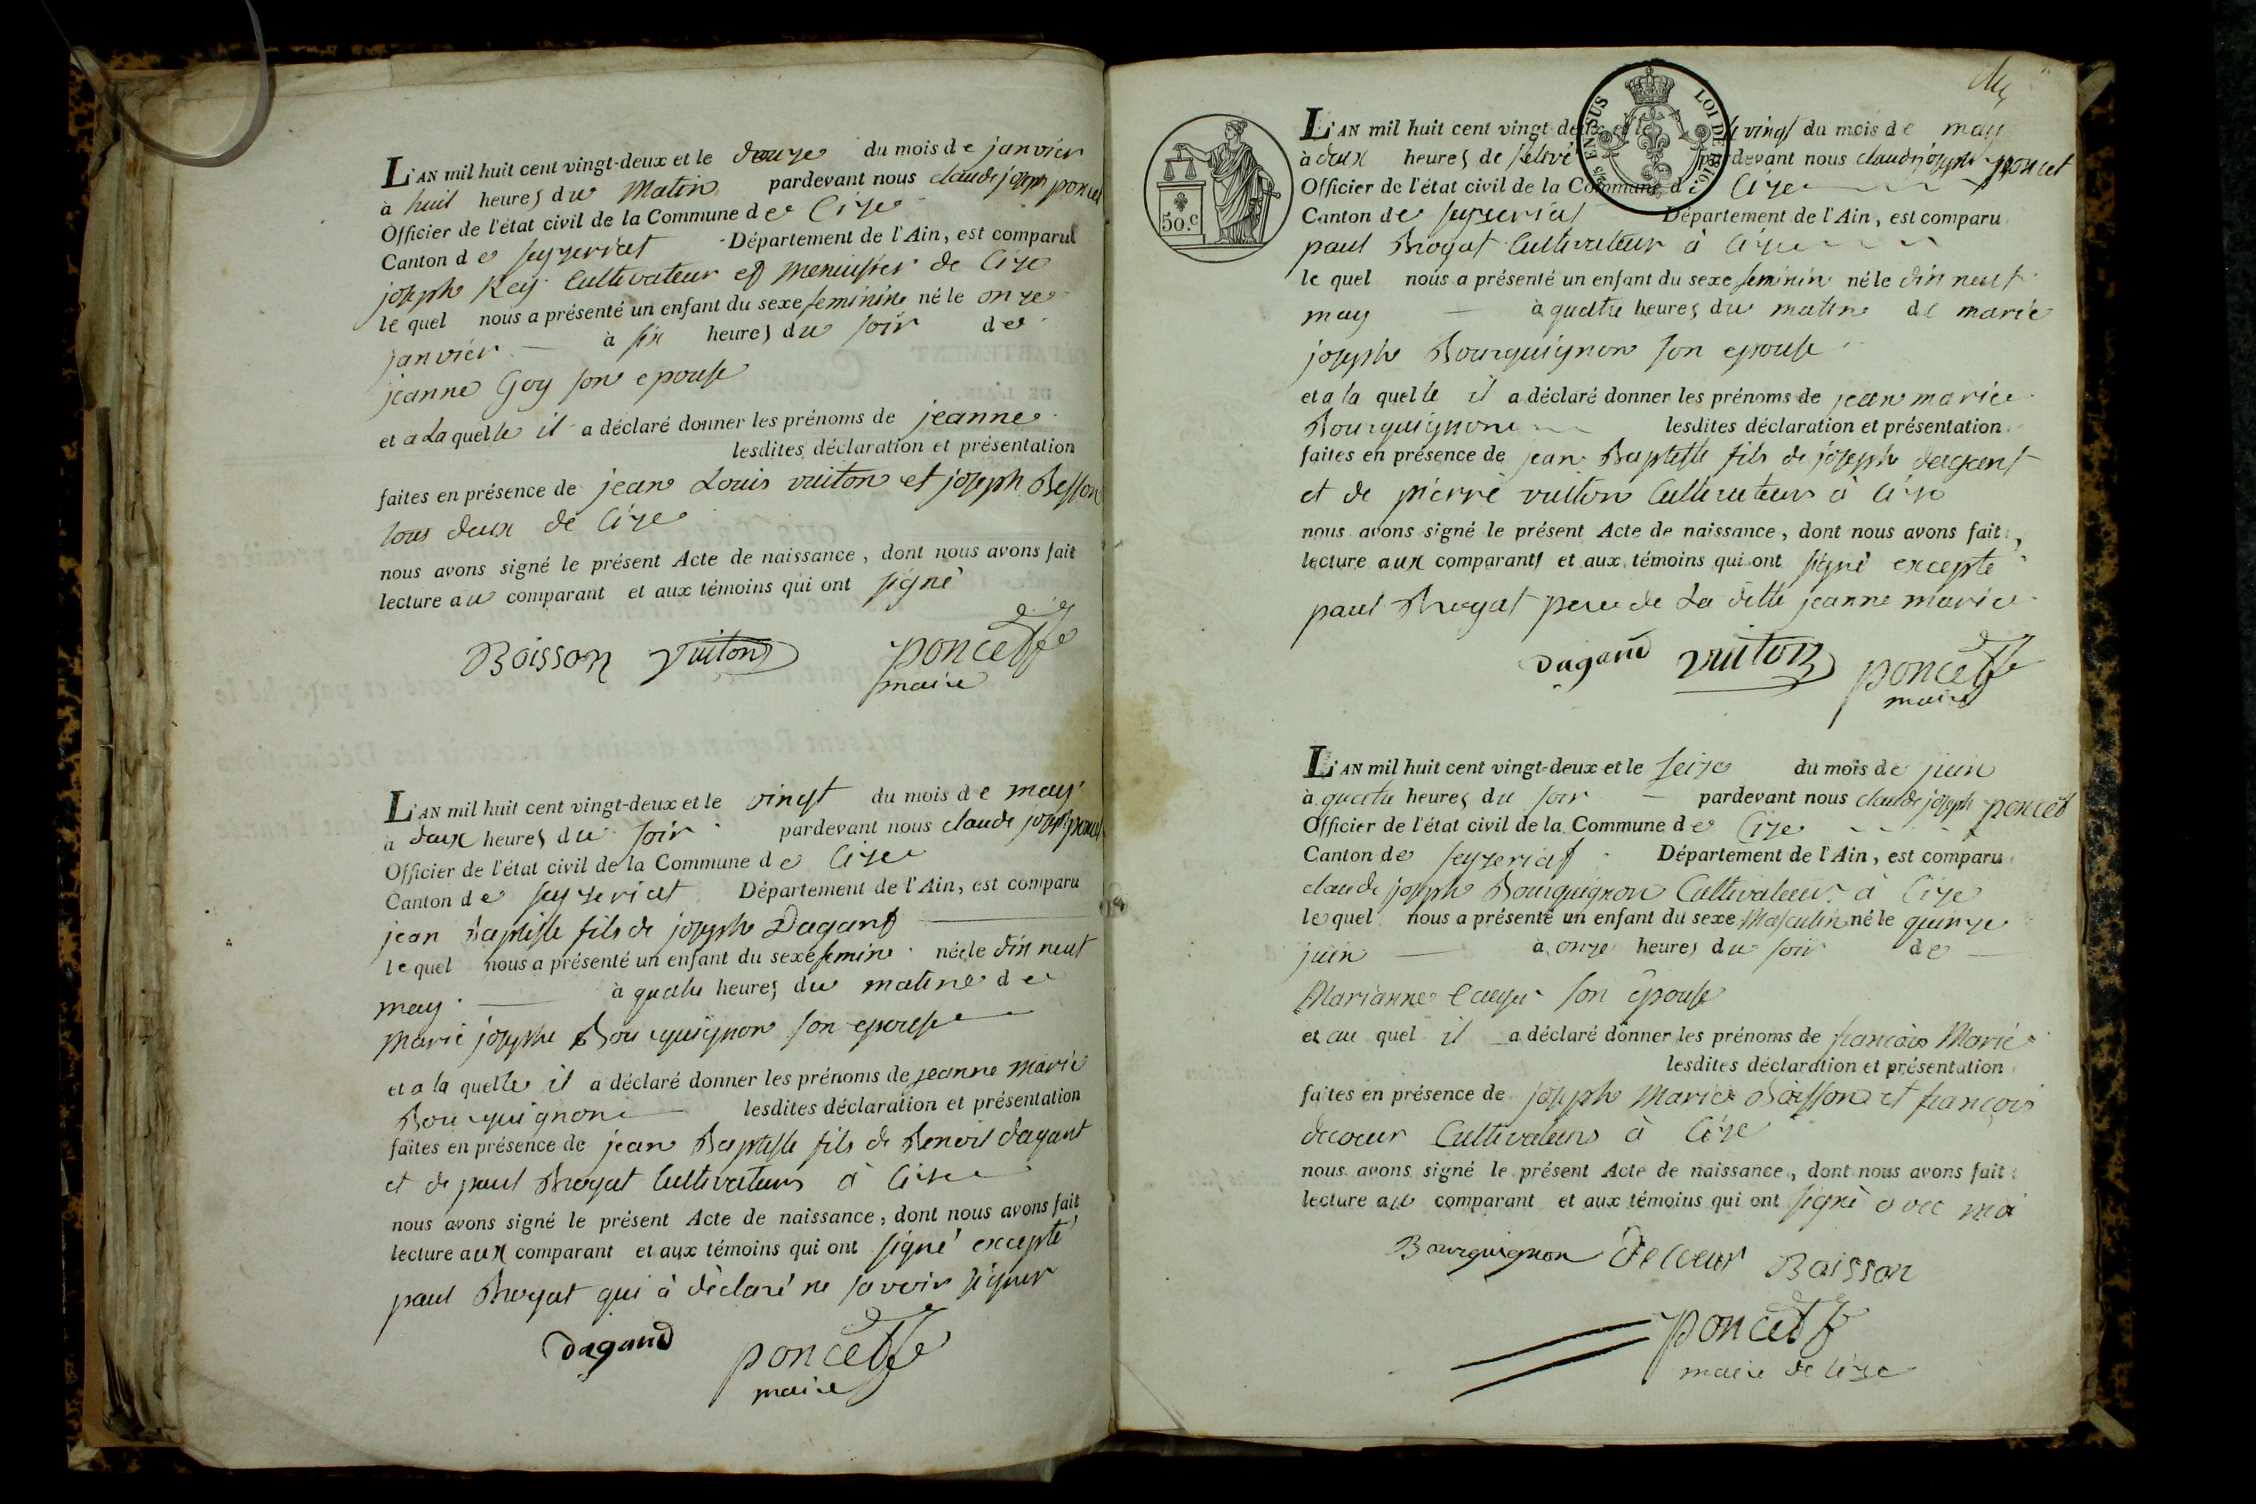 L'AN mil huit cent vingt-deux et le douze du mois de janvier
à huit heures du matin pardevant nous claude joseph poncet
Officier de l'état civil de la Commune de Cize
Canton de seyzeriat Département de l'Ain, est comparu
joseph Rey Cultivateur et menuisier de Cize
le quel nous a présenté un enfant du sexe feminin né le onze
janvier à six heures du soir de
jeanne Goy son epouse
et a La quelle il a déclaré donner les prénoms de jeanne
lesdites déclaration et présentation
faites en présence de jean Louis vuiton et joseph Besson
tous deux de Cize
nous avons signé le présent Acte de naissance, dont nous avons fait
lecture au comparant et aux témoins qui ont signé
Boisson vuiton poncet
maire
L'AN mil huit cent vingt-deux et le vingt du mois de may
à deux heures du soir pardevant nous claude joseph poncet
Officier de l'état civil de la Commune de Cize
Canton de seyzeriat Département de l'Ain, est comparu
jean Baptiste fils de joseph Dagant
le quel nous a présenté un enfant du sexe femin née le dix neuf
may à quatre heures du matin de
marie josephe Bourguignon son epouse
et a la quelle il a déclaré donner les prénoms de jeanne marie
Bourguignon lesdites déclaration et présentation
faites en présence de jean Baptiste fils de Benoit dagant
et de paul Broyat Cultivateurs à Cize
nous avons signé le présent Acte de naissance, dont nous avons fait
lecture aux comparant et aux témoins qui ont signé excepté
paul Broyat qui à déclaré ne savoir signer
dagand poncet
maire
50.c
EN SUS LOI DE 1816
L'AN mil huit cent vingt-deux et le vingt du mois de may
à deux heures de pardevant nous claude joseph poncet
Officier de l'état civil de la Commune de Cize
Canton de seyzeriat Département de l'Ain, est comparu
paul Broyat Cultivateur à Cize
le quel nous a présenté un enfant du sexe feminin né le dix neuf
may à quatre heures du matin de marie
josephe Bourguignon son epouse
et a la quelle il a déclaré donner les prénoms de jean marie
Bourguignon lesdites déclaration et présentation
faites en présence de jean Baptiste fils de joseph dagant
et de pierre vuiton Cultivateurs à Cize
nous avons signé le présent Acte de naissance, dont nous avons fait
lecture aux comparants et aux témoins qui ont signé excepté
paul Broyat pere de La ditte jeanne marie
dagand vuiton poncet
maire
L'AN mil huit cent vingt-deux et le seize du mois de juin
à quatre heures du soir pardevant nous claude joseph poncet
Officier de l'état civil de la Commune de Cize
Canton de seyzeriat Département de l'Ain, est comparu
claude joseph Bourguignon Cultivateur à Cize
le quel nous a présenté un enfant du sexe Masculin né le quinze
juin à onze heures du soir de
Marianne son épouse
et au quel il a déclaré donner les prénoms de françois Marie
lesdites déclaration et présentation
faites en présence de joseph Marie Boisson et françois
decoeur Cultivateurs à Cize
nous avons signé le présent Acte de naissance, dont nous avons fait
lecture au comparant et aux témoins qui ont signé avec moi
Bourguignon Decoeur Boisson
poncet
maire de Cize